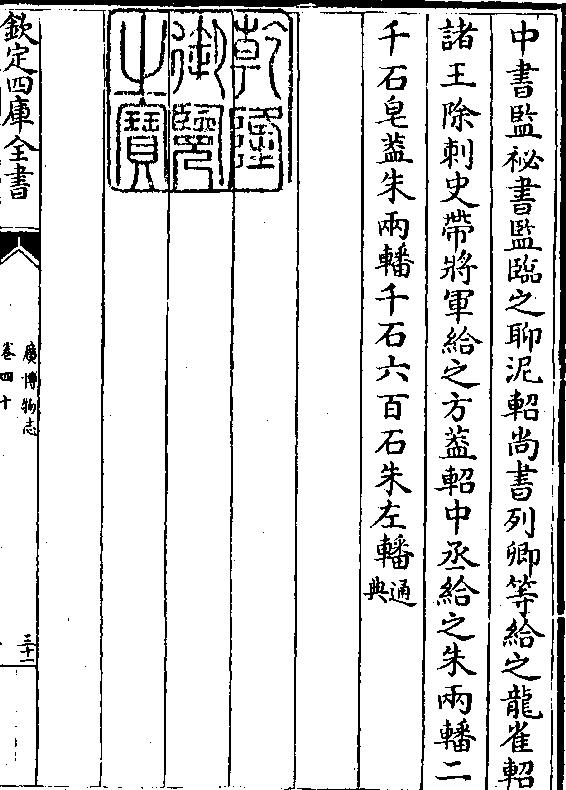 中書監祕書監臨之聊泥軺尚書列卿等給之龍雀軺
諸王除刺史帶將軍給之方蓋軺中丞給之朱兩轓二
千石皂蓋朱兩轓千石六百石朱左轓通典
乾隆御覽之寶
欽定四庫全書
廣博物志
卷四十
三十二